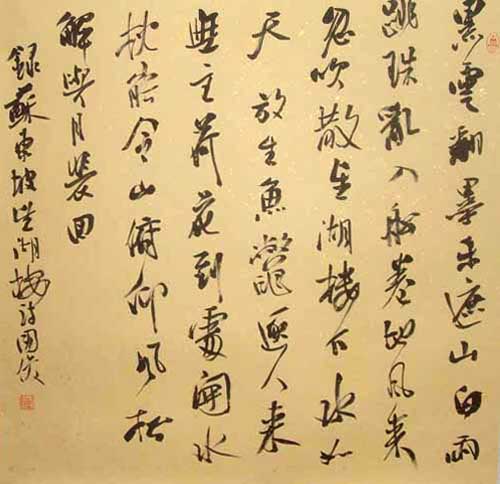 黑雲翻墨未遮山白雨
跳珠亂入船卷地風來
忽吹散望湖樓下水如
天 放生魚鱉逐人來
無主荷花到處開水
枕能令山俯仰風船
解與月裴回
錄蘇東坡望湖樓詩國